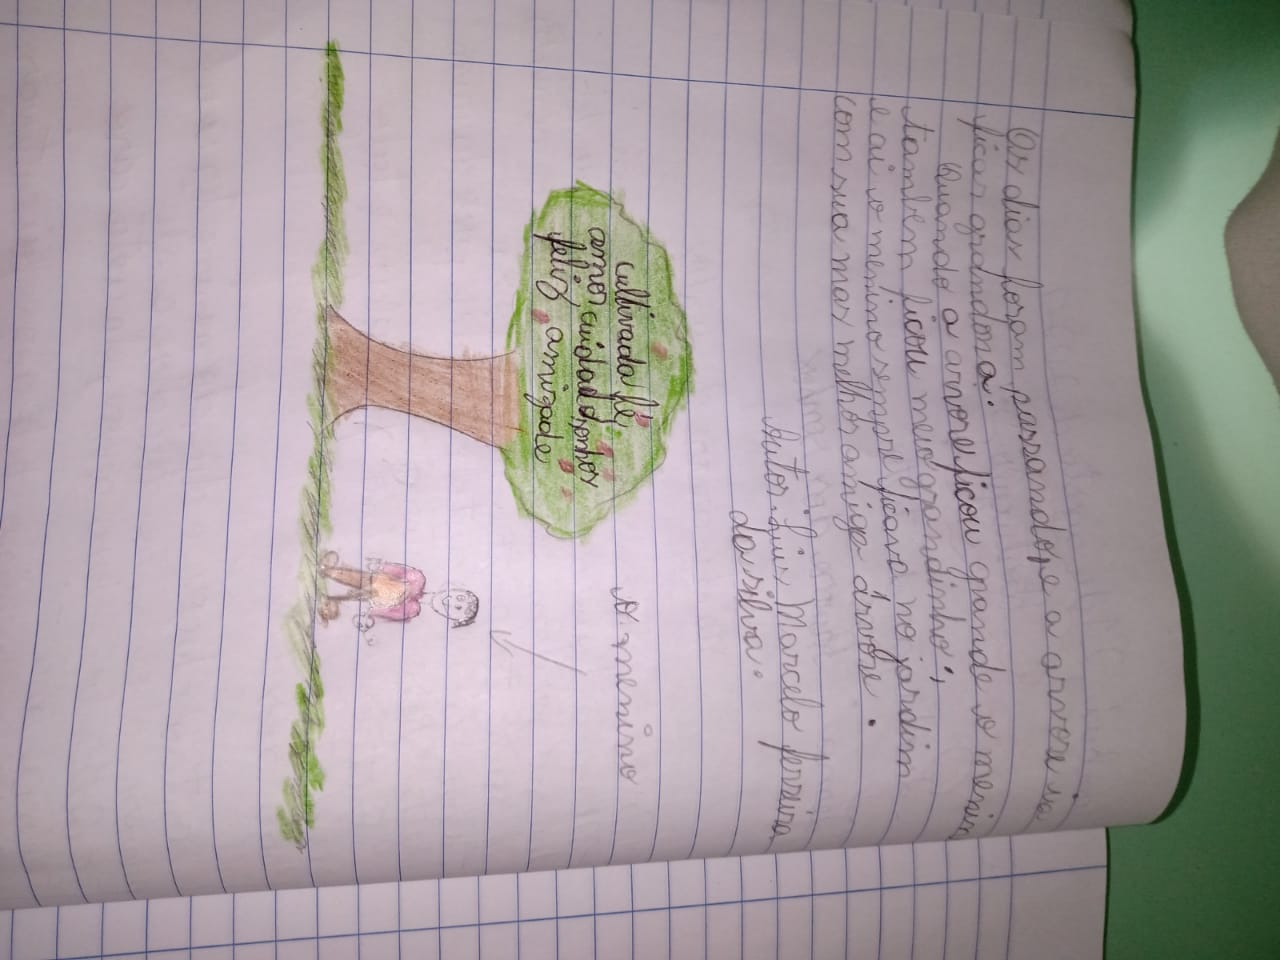 Os dias foram passandose a arvore ia
ficar grandona.
Quando a arvore ficou grande o menin
tambem ficou meio grandinho,
e ai o menino sempre ficava no jardim
com sua mas melhor amiga árvore.
Autor: Luis Marcelo ferreira
da silva.
o menino
cultivada fé
amor cuidado sonhos
feliz amizade